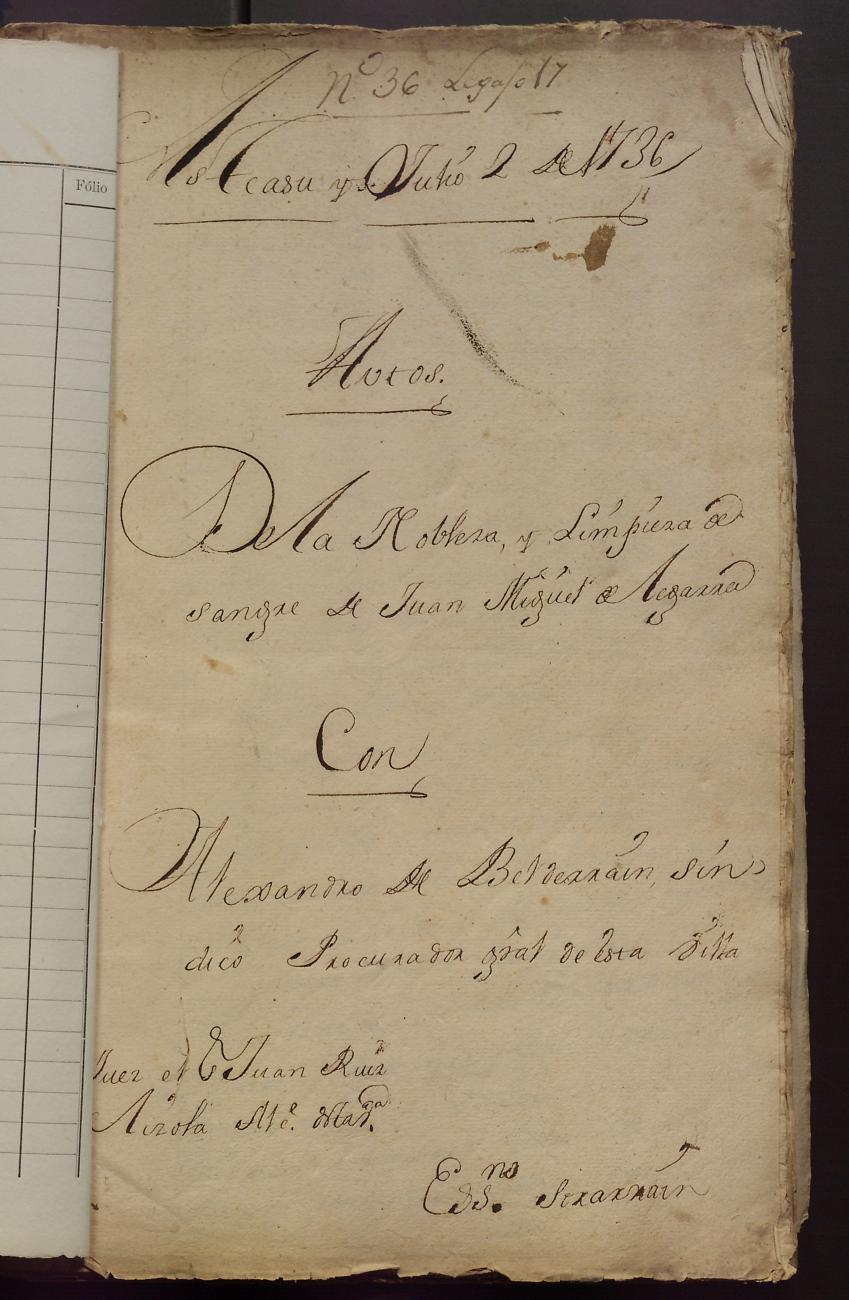 Fólio
Nº 36 Legajo 17
Asteasu y Julio 2 de 1736
Autos.
De la Nobleza, y Limpieza de
sangre de Juan Miguel de Legarra
Con
Alexandro de Belderrain, sin
dico Procurador gral de esta Villa
Juez el Juan Ruiz
Alce.
Essno.